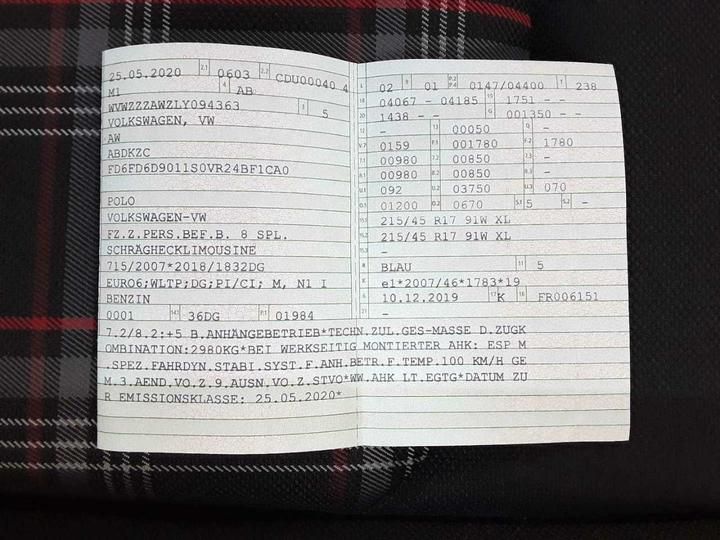 25.05.2020 2.1 0603 2.2 CDU00040 4
M1 4 AB
WVWZZZAWZLY094363 3 5
VOLKSWAGEN, VW
AW
ABDKZC
FD6FD6D9011S0VR24BF1CA0
POLO
VOLKSWAGEN-VW
FZ.Z.PERS.BEF.B. 8 SPL.
SCHRÄGHECKLIMOUSINE
715/2007*2018/1832DG
EURO6;WLTP;DG;PI/CI; M, N1 I
BENZIN
0001 14.1 36DG P.1 01984
L 02 9 01 P.2 P.4 0147/04400 T 238
18 04067 - 04185 19 1751 - -
20 1438 - - G 001350 - -
12 - 13 00050 Q -
V.7 0159 F.1 001780 F.2 1780
7.1 00980 7.2 00850 7.3 -
8.1 00980 8.2 00850 8.3 -
U.1 092 U.2 03750 U.3 070
O.1 01200 O.2 0670 S.1 5 S.2 -
15.1 215/45 R17 91W XL
15.2 215/45 R17 91W XL
15.3 -
R BLAU 11 5
K e1*2007/46*1783*19
6 10.12.2019 17 K 16 FR006151
21 -
7.2/8.2:+5 B.ANHÄNGEBETRIEB*TECHN.ZUL.GES-MASSE D.ZUGK
OMBINATION:2980KG*BEI WERKSEITIG MONTIERTER AHK: ESP M
.SPEZ.FAHRDYN.STABI.SYST.F.ANH.BETR.F.TEMP.100 KM/H GE
M.3.AEND.VO.Z.9.AUSN.VO.Z.STVO*WW.AHK LT.EGTG*DATUM ZU
R EMISSIONSKLASSE: 25.05.2020*